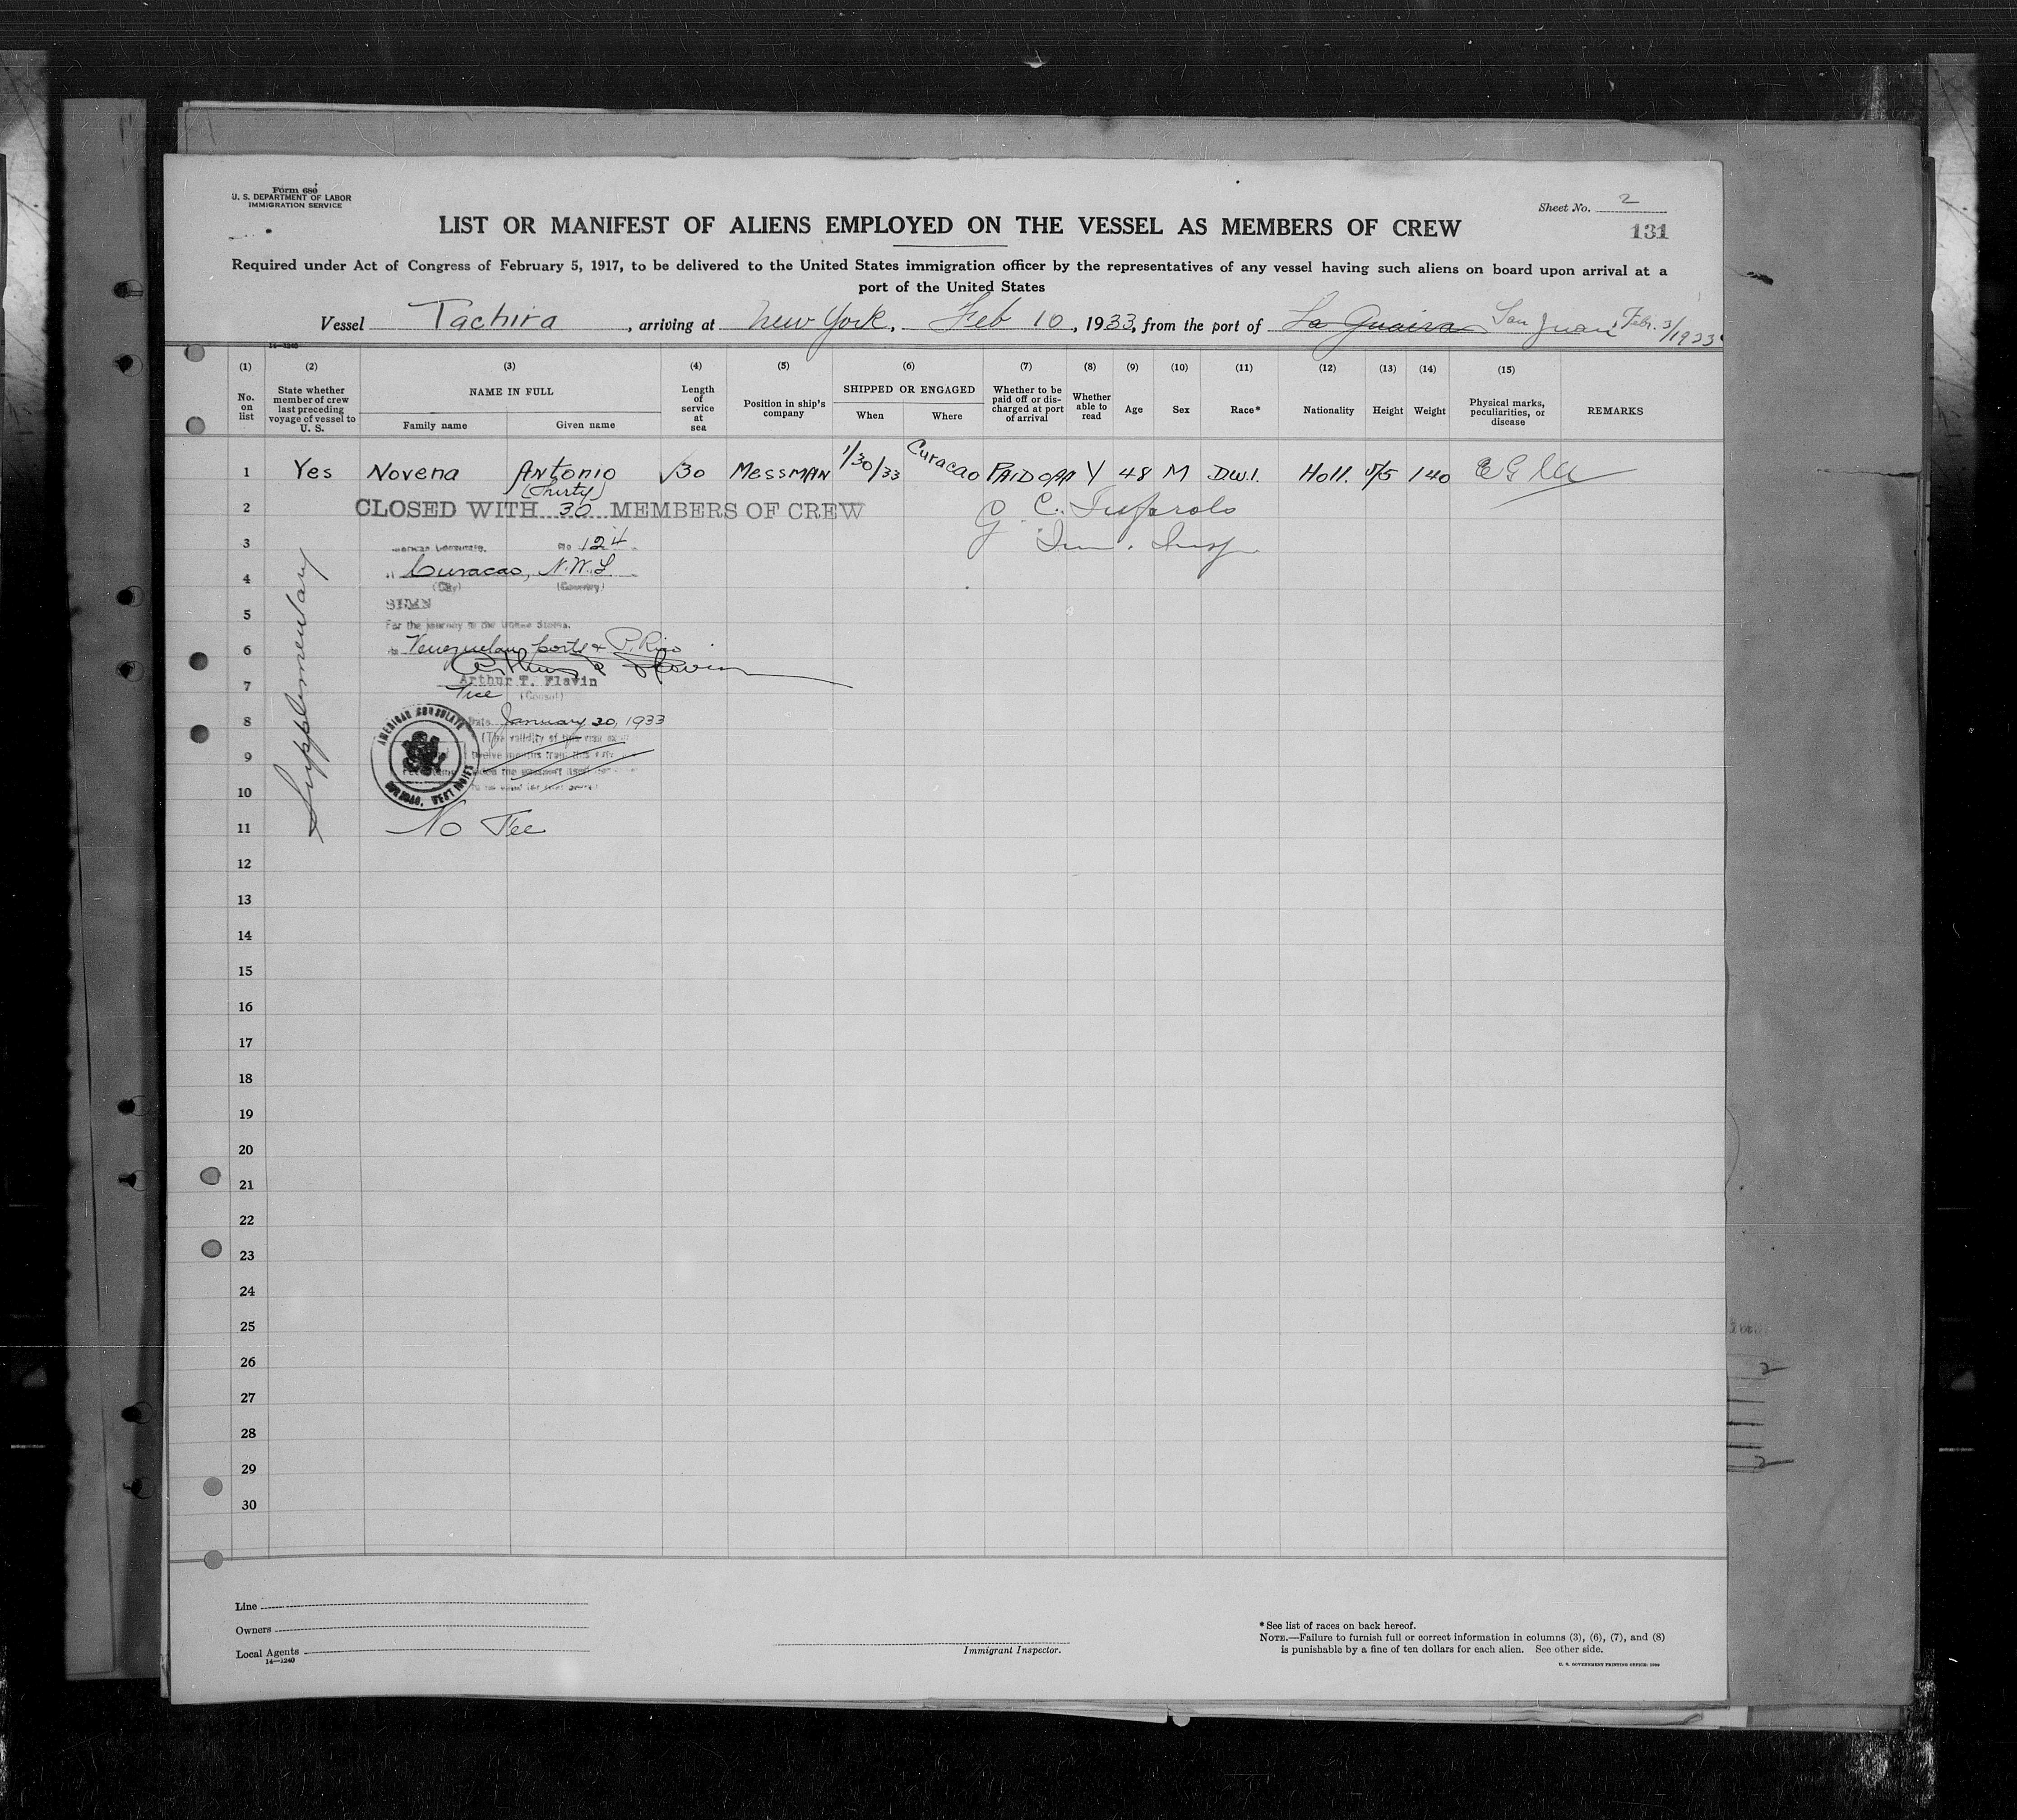 Form 680
U. S. DEPARTMENT OF LABOR
IMMIGRATION SERVICE
Sheet No. 2
131
LIST OR MANIFEST OF ALIENS EMPLOYED ON THE VESSEL AS MEMBERS OF CREW
Required under Act of Congress of February 5, 1917, to be delivered to the United States immigration officer by the representatives of any vessel having such aliens on board upon arrival at a
port of the United States
Vessel Tachira, arriving at New York, Feb 10, 1933, from the port of La Guaira San Juan, Febr. 3/1933
14—1240
(1) (2) (3) (4) (5) (6) (7) (8) (9) (10) (11) (12) (13) (14) (15)
No. on list
State whether member of crew last preceding voyage of vessel to U. S.
NAME IN FULL
Family name
Given name
Length of service at sea
Position in ship's company
SHIPPED OR ENGAGED
When
Where
Whether to be paid off or discharged at port of arrival
Whether able to read
Age
Sex
Race*
Nationality
Height
Weight
Physical marks, peculiarities, or disease
REMARKS
1 Yes Novena Antonio √30 Messman 1/30/33 Curacao PAID OFF Y 48 M D.W.I. Holl. 5/5 140
(Thirty)
2 CLOSED WITH 30 MEMBERS OF CREW G. C.
3 American Consulate, No 124 Imm. Insp.
4 Curacao, N.W.I.
(City) (Country)
5 SEEN
For the journey to the United States.
6 Venezuelan ports & P. Rico
Arthur T. Flavin
7 Arthur T. Flavin
Vice (Consul)
8 Date January 30, 1933
(The validity of this visa
9 twelve months from this date
10
AMERICAN CONSULATE
CURACAO, WEST INDIES
11 No Fee
Supplementary
12
13
14
15
16
17
18
19
20
21
22
23
24
25
26
27
28
29
30
Line
Owners
Local Agents
14—1240
Immigrant Inspector.
*See list of races on back hereof.
NOTE.—Failure to furnish full or correct information in columns (3), (6), (7), and (8)
is punishable by a fine of ten dollars for each alien. See other side.
U. S. GOVERNMENT PRINTING OFFICE